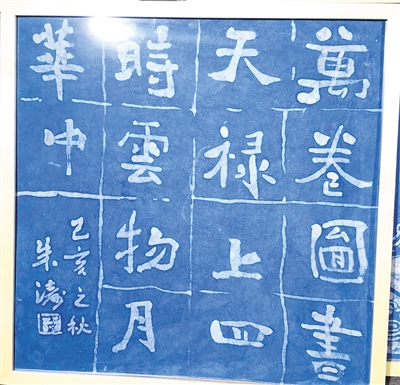 萬卷圖書
天禄上四
時雲物月
華中
己亥之秋
朱濤